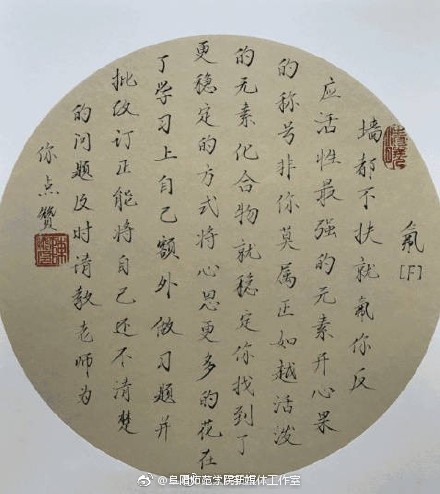 氟
[F]
墙都不扶就氟你反
应活性最强的元素开心果
的称号非你莫属正如越活泼
的元素化合物就稳定你找到了
更稳定的方式将心思更多的花在
了学习上自己额外做习题并
批改订正能将自己还不清楚
的问题及时请教老师为
你点赞
@阜阳师范学院新媒体工作室